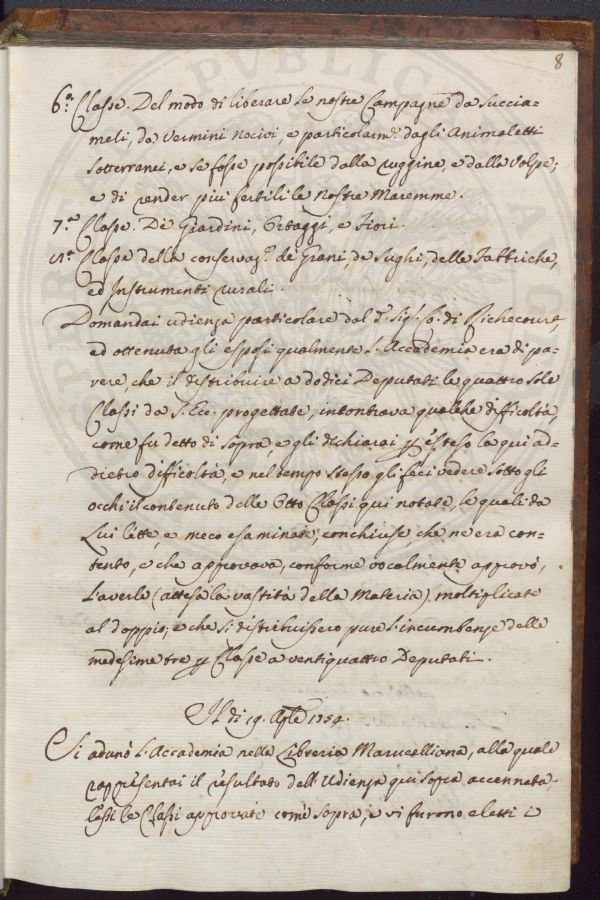 8
6.ª Classe. Del modo di liberare le nostre Campagne da Succia=
meli, da Vermini nocivi, e particolarm.e dagli Animaletti
sotterranei, e se fosse possibile dalla ruggine, e dalla Volpe;
e di render più fertili le nostre Maremme.
7.ª Classe. De' Giardini, Ortaggi, e Fiori.
8.ª Classe della conservaz.e de' Grani, de' Sughi, delle Fabbriche,
ed Instrumenti rurali.
Domandai udienza particolare dal Sig.r C. di Richecourt,
ed ottenuta gli esposi qualmente l'Accademia era di pa=
rere, che il distribuire a dodici Deputati le quattro sole
Classi da S. Ecc. progettate, incontrava qualche difficoltà,
come fu detto di sopra, e gli dichiarai p esteso la qui ad=
dietro difficoltà, e nel tempo stesso gli feci vedere sotto gli
occhi il contenuto delle Otto Classi qui notate, le quali da
Lui lette, e meco esaminate, conchiuse, che n'era con=
tento, e che approvava, conforme vocalmente approvò,
l'averle (attesa la vastità della Materia) moltiplicate
al doppio; e che si distribuissero pure l'incumbenze delle
medesime tre p Classe a ventiquattro Deputati.
Il dì 19. Aple 1754.
Si adunò l'Accademia nella Libreria Marucelliana, alla quale
rappresentai il resultato dell'Udienza qui sopra accennata,
lessi le Classi approvate come sopra, e vi furono eletti i